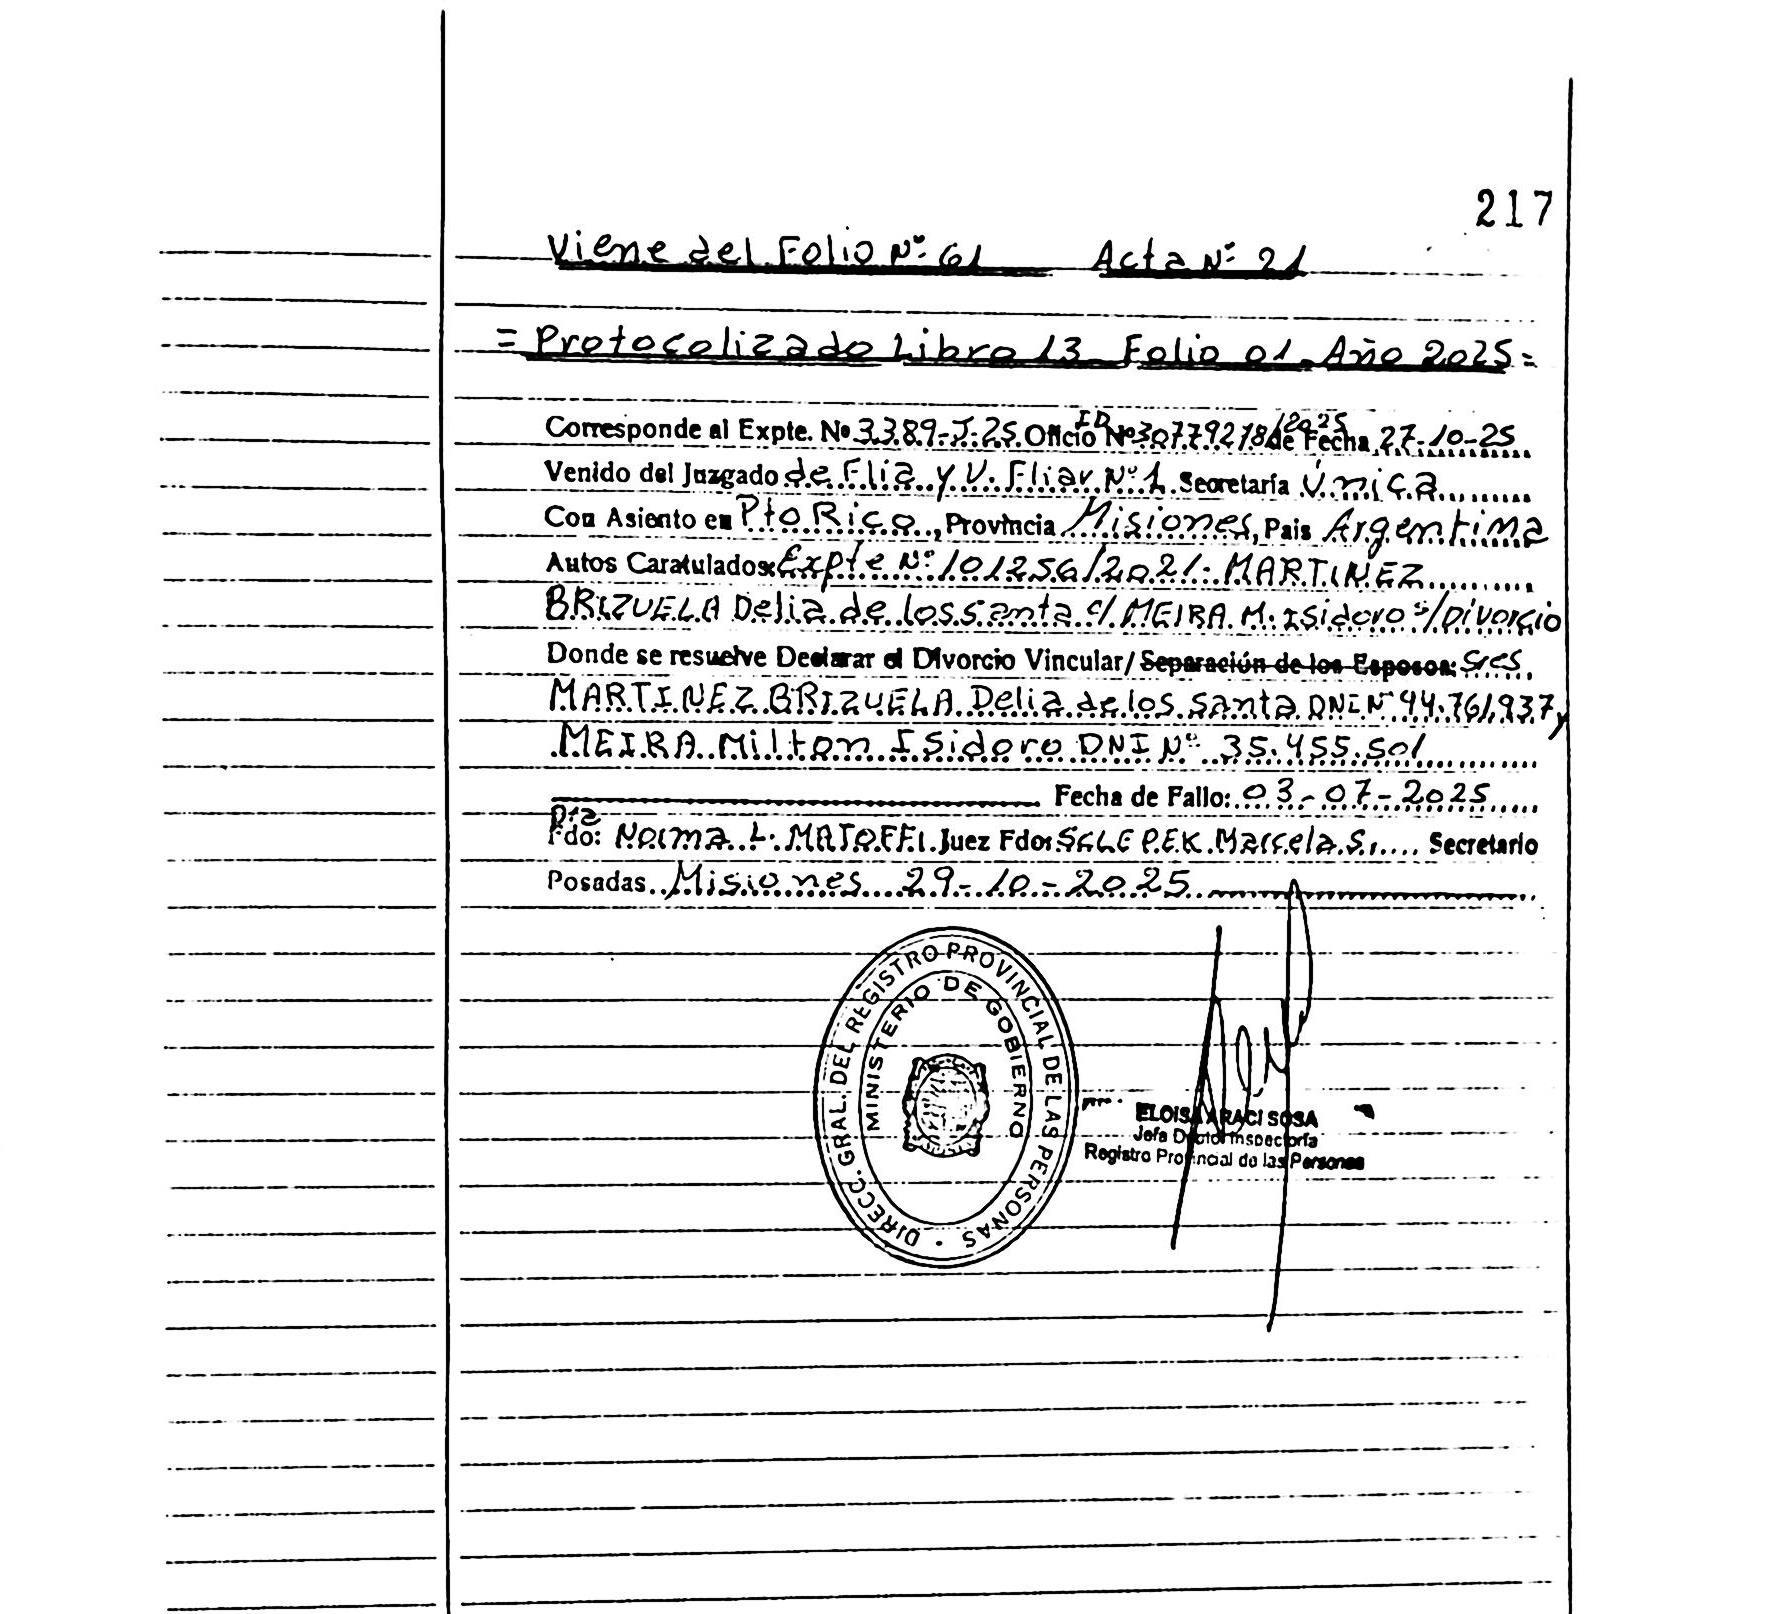 217
Viene del Folio Nº 61 Acta Nº 21
= Protocolizado Libro 13 Folio 01. Año 2025 =
Corresponde al Expte. Nº 3389-J-25. Oficio ID Nº 30779278/2025 de Fecha 27-10-25
Venido del Juzgado de Flia y V. Fliar Nº 1 Secretaría Única
Con Asiento en Pto Rico, Provincia Misiones, Pais Argentina
Autos Caratulados: Expte Nº 101256/2021. MARTINEZ
BRIZUELA Delia de los santa c/ MEIRA M. Isidoro s/ Divorcio
Donde se resuelve Declarar el Divorcio Vincular/ Separación de los Esposos: sres.
MARTINEZ BRIZUELA Delia de los santa DNI Nº 94.761.937 y
MEIRA Milton Isidoro DNI Nº 35.455.501
Fecha de Fallo: 03-07-2025
Dra
Fdo: Norma L. MATOFFI Juez Fdo: SCLEPEK Marcela S. Secretario
Posadas Misiones 29-10-2025
DIRECC. GRAL. DEL REGISTRO PROVINCIAL DE LAS PERSONAS
MINISTERIO DE GOBIERNO
ELOISA ARACI SOSA
Jefa Inspectoría
Registro Provincial de las Personas